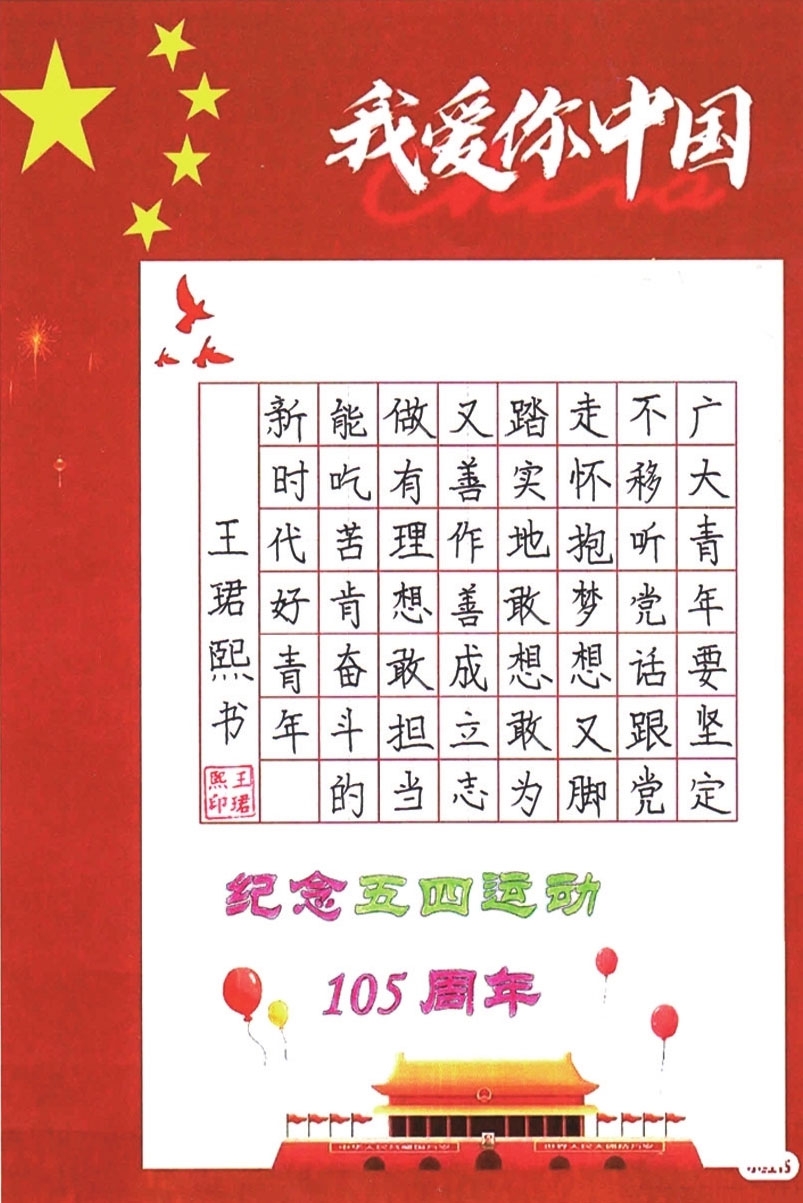 我爱你中国
China
广大青年要坚定
不移听党话跟党
走怀抱梦想又脚
踏实地敢想敢为
又善作善成立志
做有理想敢担当
能吃苦肯奋斗的
新时代好青年
王珺熙书
王珺熙印
纪念五四运动
105周年
中华人民共和国万岁
世界人民大团结万岁